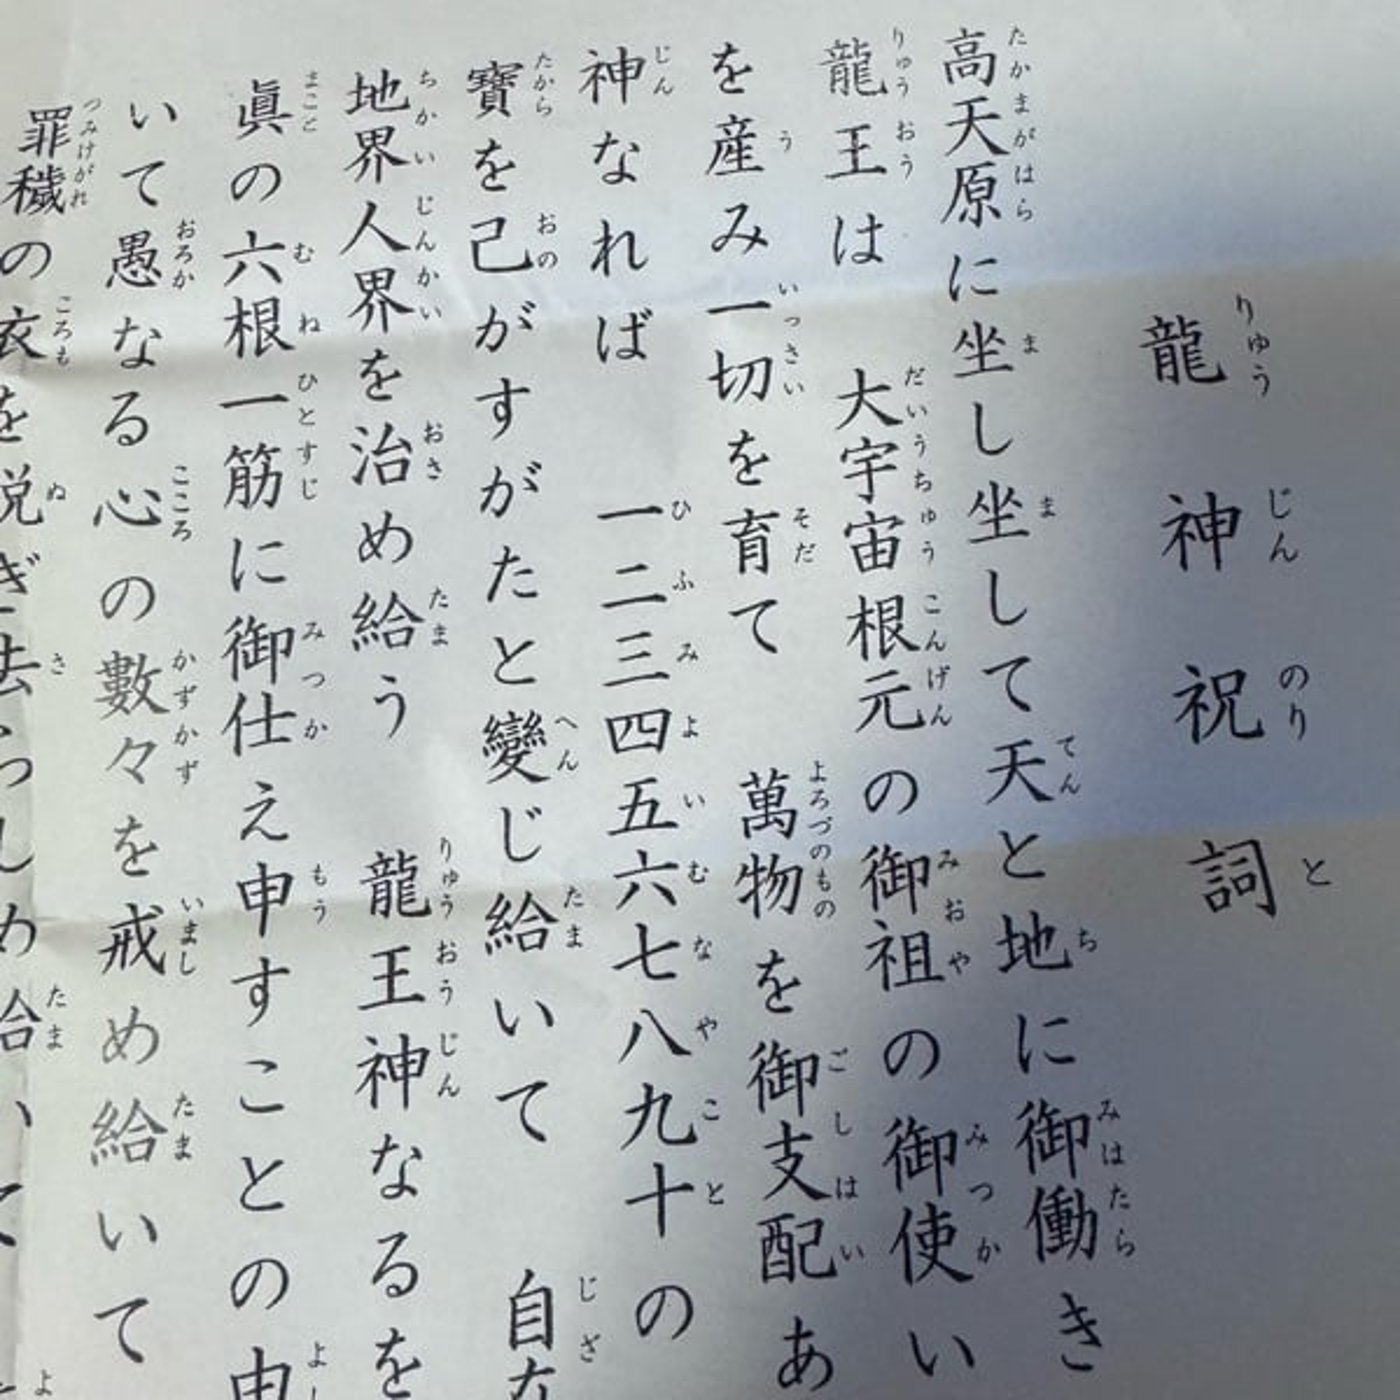 龍神祝詞
高天原に坐し坐して天と地に御働き
龍王は　大宇宙根元の御祖の御使い
を産み一切を育て　萬物を御支配あ
神なれば　一二三四五六七八九十の
寶を己がすがたと變じ給いて　自在
地界人界を治め給う　龍王神なるを
眞の六根一筋に御仕え申すことの由
いて愚なる心の數々を戒め給いて
罪穢の衣を脱ぎ去らしめ給いて